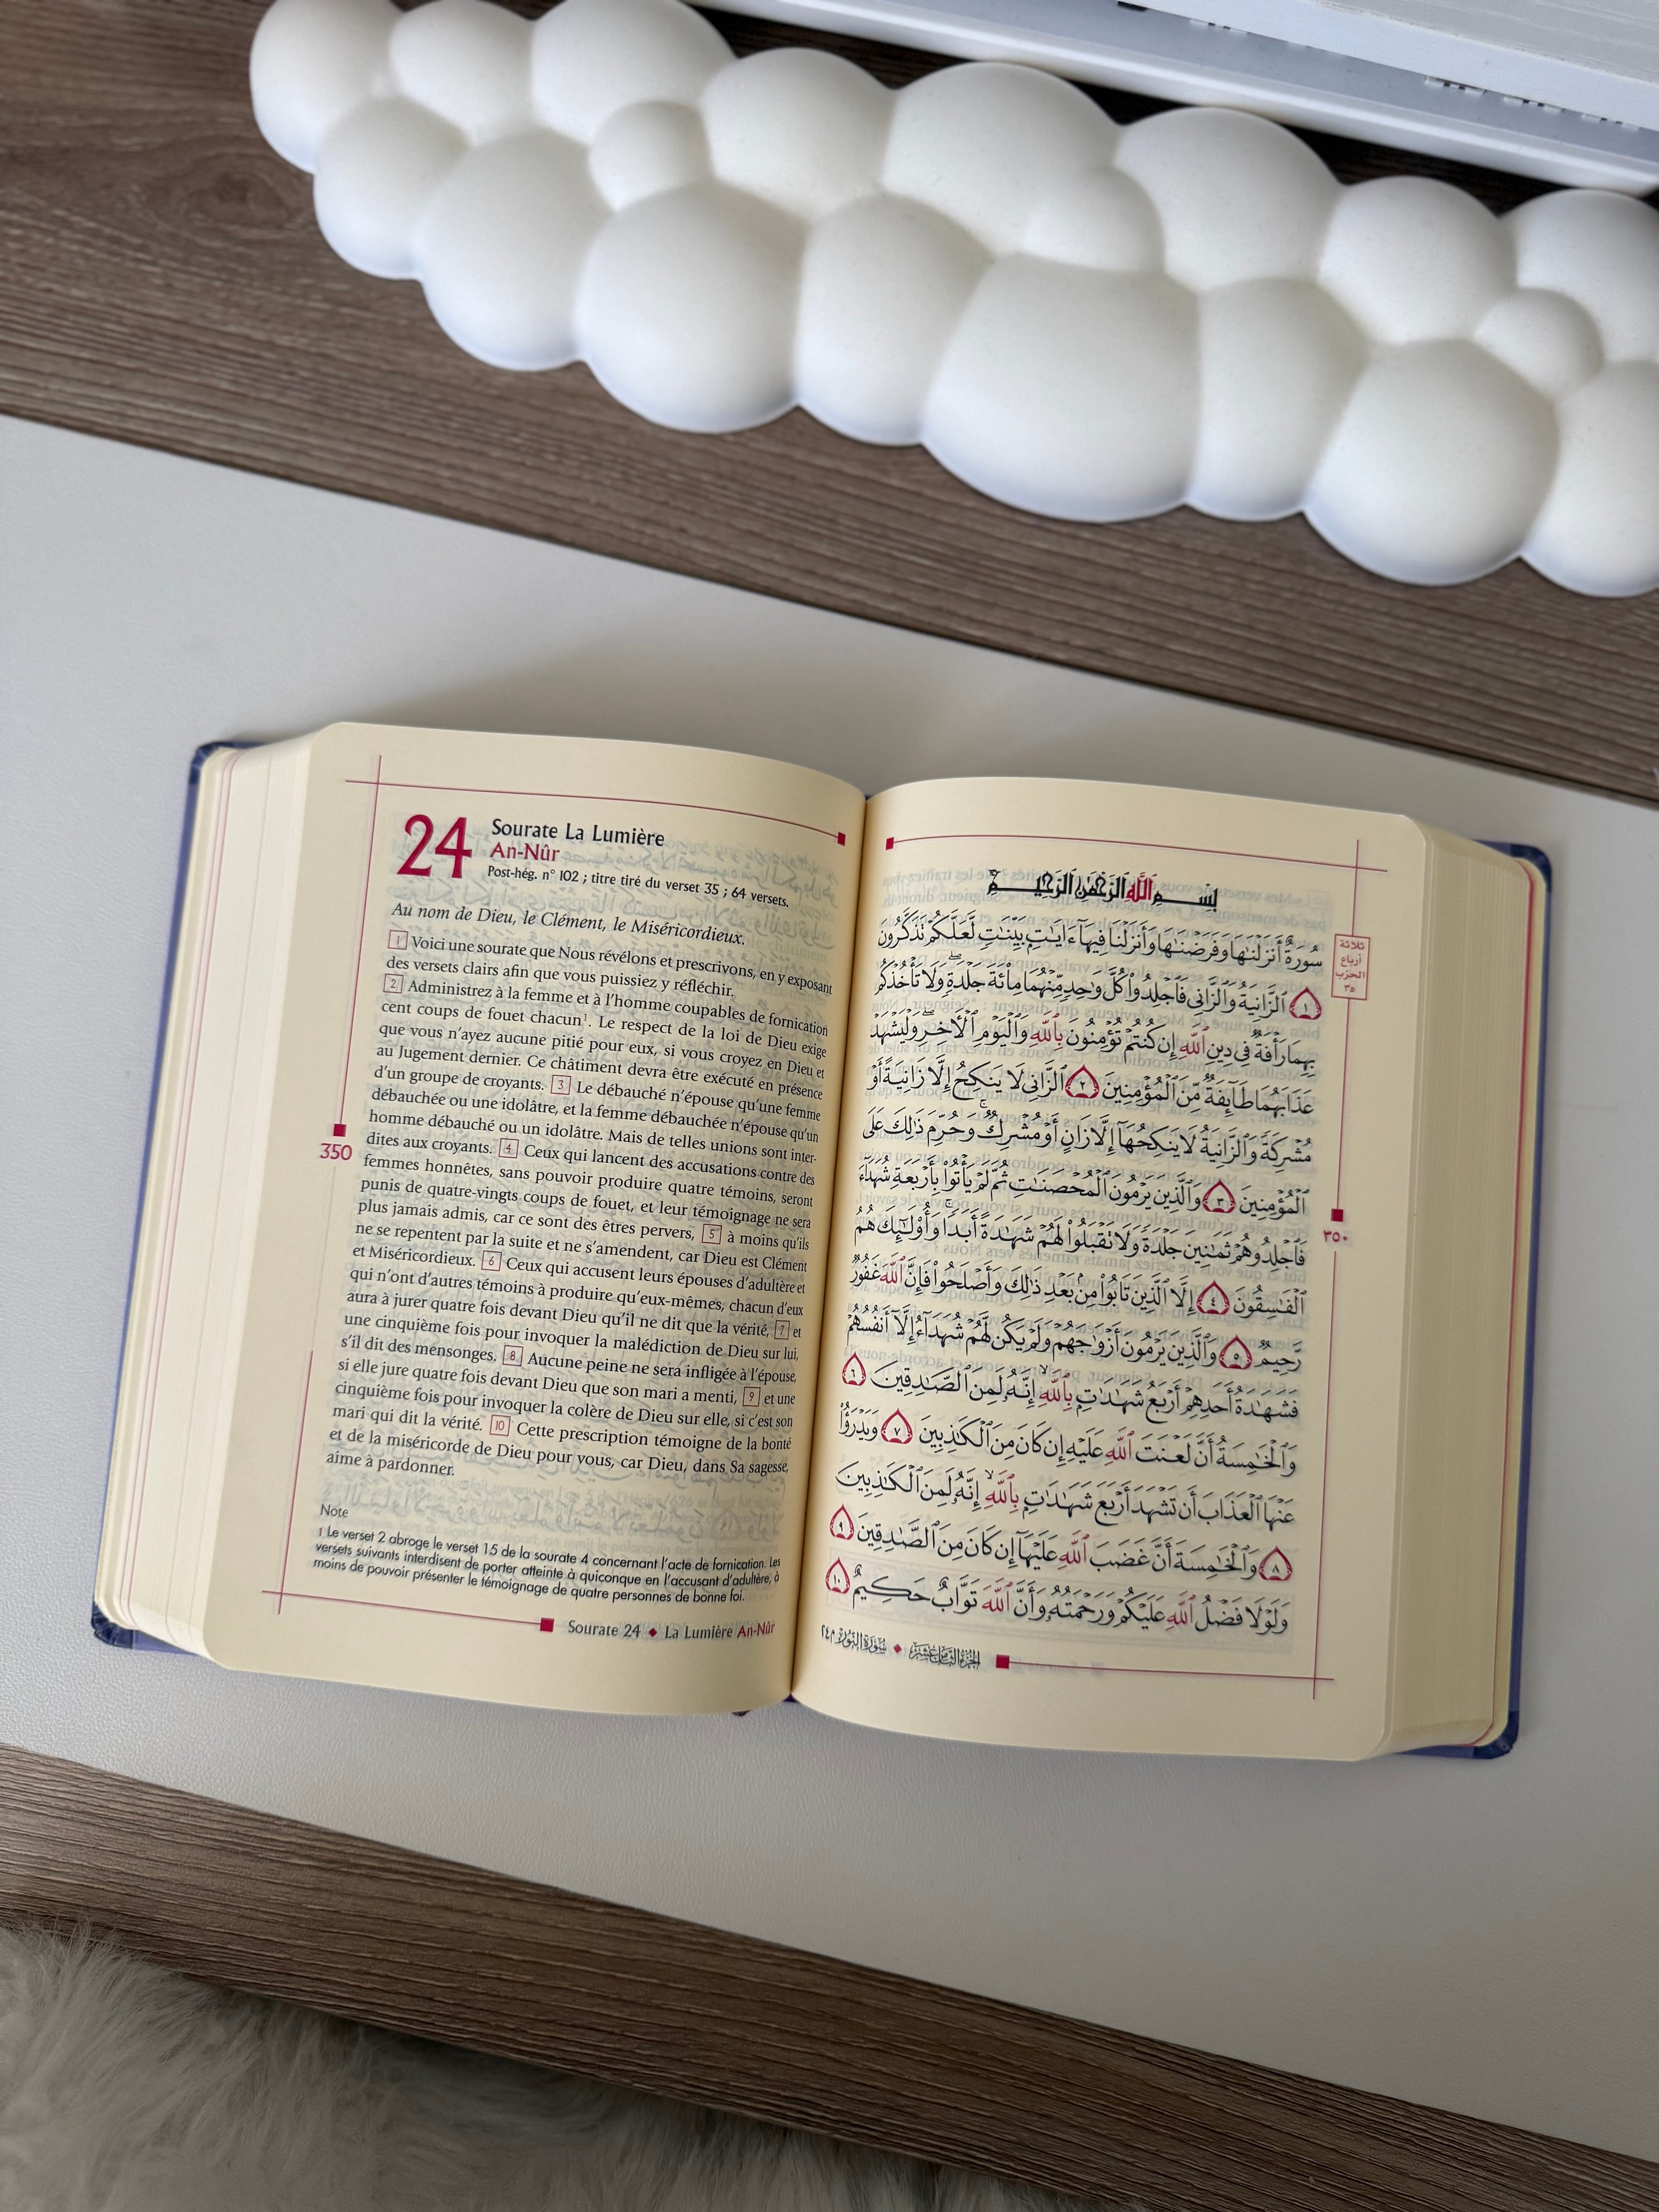 24
Sourate La Lumière
An-Nûr
Post-hég. n° 102 ; titre tiré du verset 35 ; 64 versets.
Au nom de Dieu, le Clément, le Miséricordieux.
1 Voici une sourate que Nous révélons et prescrivons, en y exposant
des versets clairs afin que vous puissiez y réfléchir.
2 Administrez à la femme et à l'homme coupables de fornication
cent coups de fouet chacun¹. Le respect de la loi de Dieu exige
que vous n'ayez aucune pitié pour eux, si vous croyez en Dieu et
au Jugement dernier. Ce châtiment devra être exécuté en présence
d'un groupe de croyants. 3 Le débauché n'épouse qu'une femme
débauchée ou une idolâtre, et la femme débauchée n'épouse qu'un
homme débauché ou un idolâtre. Mais de telles unions sont inter-
dites aux croyants. 4 Ceux qui lancent des accusations contre des
femmes honnêtes, sans pouvoir produire quatre témoins, seront
punis de quatre-vingts coups de fouet, et leur témoignage ne sera
plus jamais admis, car ce sont des êtres pervers, 5 à moins qu'ils
ne se repentent par la suite et ne s'amendent, car Dieu est Clément
et Miséricordieux. 6 Ceux qui accusent leurs épouses d'adultère et
qui n'ont d'autres témoins à produire qu'eux-mêmes, chacun d'eux
aura à jurer quatre fois devant Dieu qu'il ne dit que la vérité, 7 et
une cinquième fois pour invoquer la malédiction de Dieu sur lui,
s'il dit des mensonges. 8 Aucune peine ne sera infligée à l'épouse,
si elle jure quatre fois devant Dieu que son mari a menti, 9 et une
cinquième fois pour invoquer la colère de Dieu sur elle, si c'est son
mari qui dit la vérité. 10 Cette prescription témoigne de la bonté
et de la miséricorde de Dieu pour vous, car Dieu, dans Sa sagesse,
aime à pardonner.
350
Note
1 Le verset 2 abroge le verset 15 de la sourate 4 concernant l'acte de fornication. Les
versets suivants interdisent de porter atteinte à quiconque en l'accusant d'adultère, à
moins de pouvoir présenter le témoignage de quatre personnes de bonne foi.
Sourate 24 ◆ La Lumière An-Nûr
بِسْمِ اللَّهِ الرَّحْمَٰنِ الرَّحِيمِ
سُورَةٌ أَنزَلْنَٰهَا وَفَرَضْنَٰهَا وَأَنزَلْنَا فِيهَآ ءَايَٰتٍۭ بَيِّنَٰتٍ لَّعَلَّكُمْ تَذَكَّرُونَ
١ ٱلزَّانِيَةُ وَٱلزَّانِى فَٱجْلِدُوا۟ كُلَّ وَٰحِدٍ مِّنْهُمَا مِا۟ئَةَ جَلْدَةٍ ۖ وَلَا تَأْخُذْكُم
بِهِمَا رَأْفَةٌ فِى دِينِ ٱللَّهِ إِن كُنتُمْ تُؤْمِنُونَ بِٱللَّهِ وَٱلْيَوْمِ ٱلْءَاخِرِ ۖ وَلْيَشْهَدْ
عَذَابَهُمَا طَآئِفَةٌ مِّنَ ٱلْمُؤْمِنِينَ ٢ ٱلزَّانِى لَا يَنكِحُ إِلَّا زَانِيَةً أَوْ
مُشْرِكَةً وَٱلزَّانِيَةُ لَا يَنكِحُهَآ إِلَّا زَانٍ أَوْ مُشْرِكٌ ۚ وَحُرِّمَ ذَٰلِكَ عَلَى
ٱلْمُؤْمِنِينَ ٣ وَٱلَّذِينَ يَرْمُونَ ٱلْمُحْصَنَٰتِ ثُمَّ لَمْ يَأْتُوا۟ بِأَرْبَعَةِ شُهَدَآءَ
فَٱجْلِدُوهُمْ ثَمَٰنِينَ جَلْدَةً وَلَا تَقْبَلُوا۟ لَهُمْ شَهَٰدَةً أَبَدًا ۚ وَأُو۟لَٰٓئِكَ هُمُ
ٱلْفَٰسِقُونَ ٤ إِلَّا ٱلَّذِينَ تَابُوا۟ مِنۢ بَعْدِ ذَٰلِكَ وَأَصْلَحُوا۟ فَإِنَّ ٱللَّهَ غَفُورٌ
رَّحِيمٌ ٥ وَٱلَّذِينَ يَرْمُونَ أَزْوَٰجَهُمْ وَلَمْ يَكُن لَّهُمْ شُهَدَآءُ إِلَّآ أَنفُسُهُمْ
فَشَهَٰدَةُ أَحَدِهِمْ أَرْبَعُ شَهَٰدَٰتٍۭ بِٱللَّهِ ۙ إِنَّهُۥ لَمِنَ ٱلصَّٰدِقِينَ ٦
وَٱلْخَٰمِسَةُ أَنَّ لَعْنَتَ ٱللَّهِ عَلَيْهِ إِن كَانَ مِنَ ٱلْكَٰذِبِينَ ٧ وَيَدْرَؤُا۟
عَنْهَا ٱلْعَذَابَ أَن تَشْهَدَ أَرْبَعَ شَهَٰدَٰتٍۭ بِٱللَّهِ ۙ إِنَّهُۥ لَمِنَ ٱلْكَٰذِبِينَ
٨ وَٱلْخَٰمِسَةَ أَنَّ غَضَبَ ٱللَّهِ عَلَيْهَآ إِن كَانَ مِنَ ٱلصَّٰدِقِينَ ٩
وَلَوْلَا فَضْلُ ٱللَّهِ عَلَيْكُمْ وَرَحْمَتُهُۥ وَأَنَّ ٱللَّهَ تَوَّابٌ حَكِيمٌ ١٠
ثلاثة
أرباع
الحزب
٣٥
٣٥٠
الجزء الثامن عشر ◆ سورة النور م ٢٤